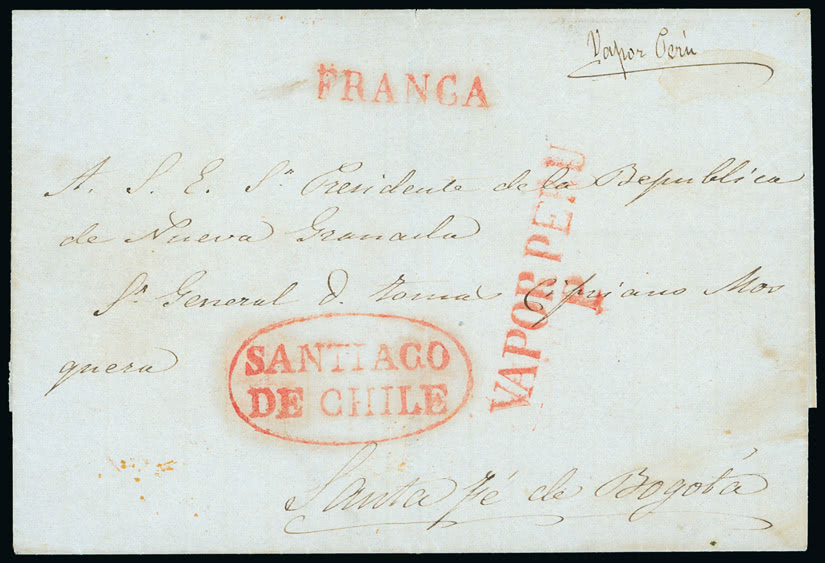 Vapor Perú
FRANCA
A. S. E. Sr. Presidente de la Republica
de Nueva Granada
Sr. General D. Tomas Cipriano Mos
quera
VAPOR PERU
R
SANTIAGO
DE CHILE
Santa Fé de Bogotá